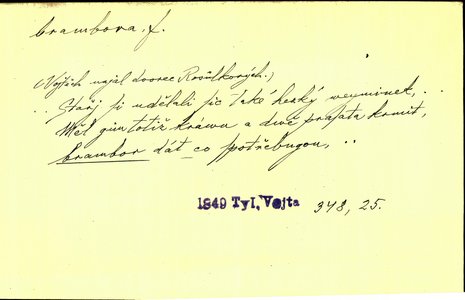 brambora, f.
(Vojtěch najal dvorec Rovůlkových.)
.. Stařj si udělali sic také hezký weyminek, ..
Měl gim totiž kráwu a dwě prasata krmit,
brambor dát co spotřebugou, ..
1849 Tyl, Vojta 348, 25.